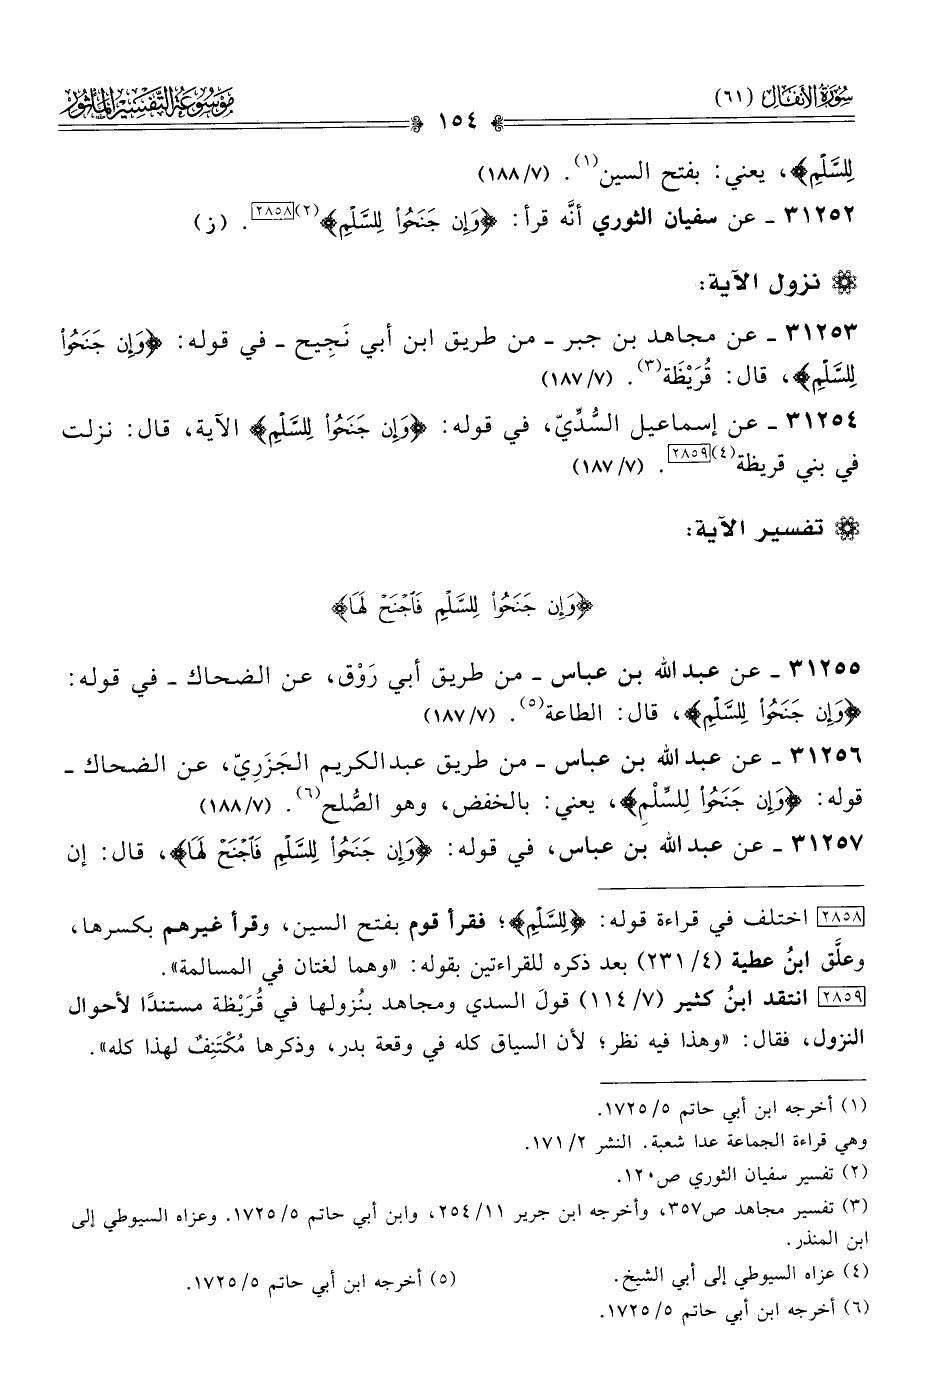 سُورَةُ الأَنفَال (٦١)
١٥٤
مَوْسُوعَة التَّفْسِير المَأْثُور
لِلسَّلْمِ﴾، يعني: بفتح السين(١). (٧/ ١٨٨)
٣١٢٥٢ ـ عن سفيان الثوري أنَّه قرأ: ﴿وَإِن جَنَحُواْ لِلسَّلْمِ﴾(٢)[٢٨٥٨]. (ز)
نزول الآية:
٣١٢٥٣ ـ عن مجاهد بن جبر ـ من طريق ابن أبي نَجِيح ـ في قوله: ﴿وَإِن جَنَحُواْ
لِلسَّلْمِ﴾، قال: قُرَيْظَة(٣). (٧/ ١٨٧)
٣١٢٥٤ ـ عن إسماعيل السُّدِّيّ، في قوله: ﴿وَإِن جَنَحُواْ لِلسَّلْمِ﴾ الآية، قال: نزلت
في بني قريظة(٤)[٢٨٥٩]. (٧/ ١٨٧)
تفسير الآية:
﴿وَإِن جَنَحُواْ لِلسَّلْمِ فَٱجْنَحْ لَهَا﴾
٣١٢٥٥ ـ عن عبد الله بن عباس ـ من طريق أبي رَوْق، عن الضحاك ـ في قوله:
﴿وَإِن جَنَحُواْ لِلسَّلْمِ﴾، قال: الطاعة(٥). (٧/ ١٨٧)
٣١٢٥٦ ـ عن عبد الله بن عباس ـ من طريق عبد الكريم الجَزَرِيّ، عن الضحاك ـ
قوله: ﴿وَإِن جَنَحُواْ لِلسِّلْمِ﴾، يعني: بالخفض، وهو الصُّلح(٦). (٧/ ١٨٨)
٣١٢٥٧ ـ عن عبد الله بن عباس، في قوله: ﴿وَإِن جَنَحُواْ لِلسَّلْمِ فَٱجْنَحْ لَهَا﴾، قال: إن
[٢٨٥٨] اختلف في قراءة قوله: ﴿لِلسَّلْمِ﴾؛ فقرأ قوم بفتح السين، وقرأ غيرهم بكسرها،
وعلَّق ابنُ عطية (٤/ ٢٣١) بعد ذكره للقراءتين بقوله: «وهما لغتان في المسالمة».
[٢٨٥٩] انتقد ابنُ كثير (٧/ ١١٤) قولَ السدي ومجاهد بنُزولها في قُرَيْظة مستندًا لأحوال
النزول، فقال: «وهذا فيه نظر؛ لأن السياق كله في وقعة بدر، وذكرها مُكْتَنِفٌ لهذا كله».
(١) أخرجه ابن أبي حاتم ٥/ ١٧٢٥.
وهي قراءة الجماعة عدا شعبة. النشر ٢/ ١٧١.
(٢) تفسير سفيان الثوري ص١٢٠.
(٣) تفسير مجاهد ص٣٥٧، وأخرجه ابن جرير ١١/ ٢٥٤، وابن أبي حاتم ٥/ ١٧٢٥. وعزاه السيوطي إلى
ابن المنذر.
(٤) عزاه السيوطي إلى أبي الشيخ. (٥) أخرجه ابن أبي حاتم ٥/ ١٧٢٥.
(٦) أخرجه ابن أبي حاتم ٥/ ١٧٢٥.